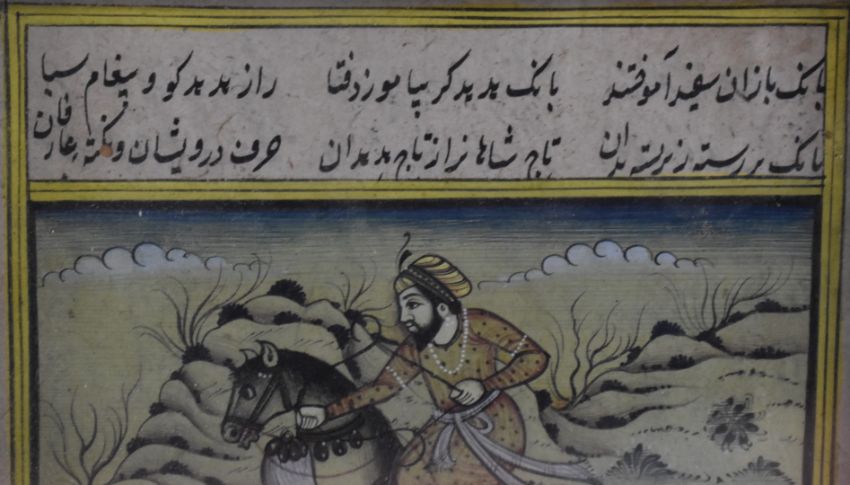 بانک بازان سفید آموختند بانک هدهد کر بیاموزد فتا راز هدهد کو و پیغام سبا
بانک بررسته ز بربسته بدان تاج شاهانرا ز تاج هدهدان حرف درویشان و نکته عارفان